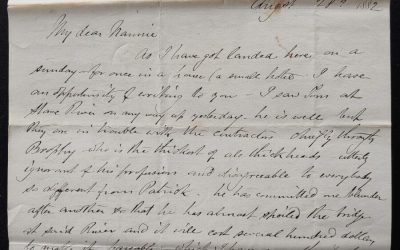 August 28th 1882
My dear Nannie
As I have got landed here on a
sunday – for once in a house (a small hotel – I have
an opportunity of writing to you – I saw Tom at
River on my way up yesterday. he is well but
they are in trouble with the contractors chiefly through
Brophy who is the thickest of all thickheads utterly
ignorant of his profession and disagreeable to everybody
so different from Patrick – he has committed one blunder
after another so that he has almost spoiled the bridge
at said River and it will cost several hundred dollars
to make it passable